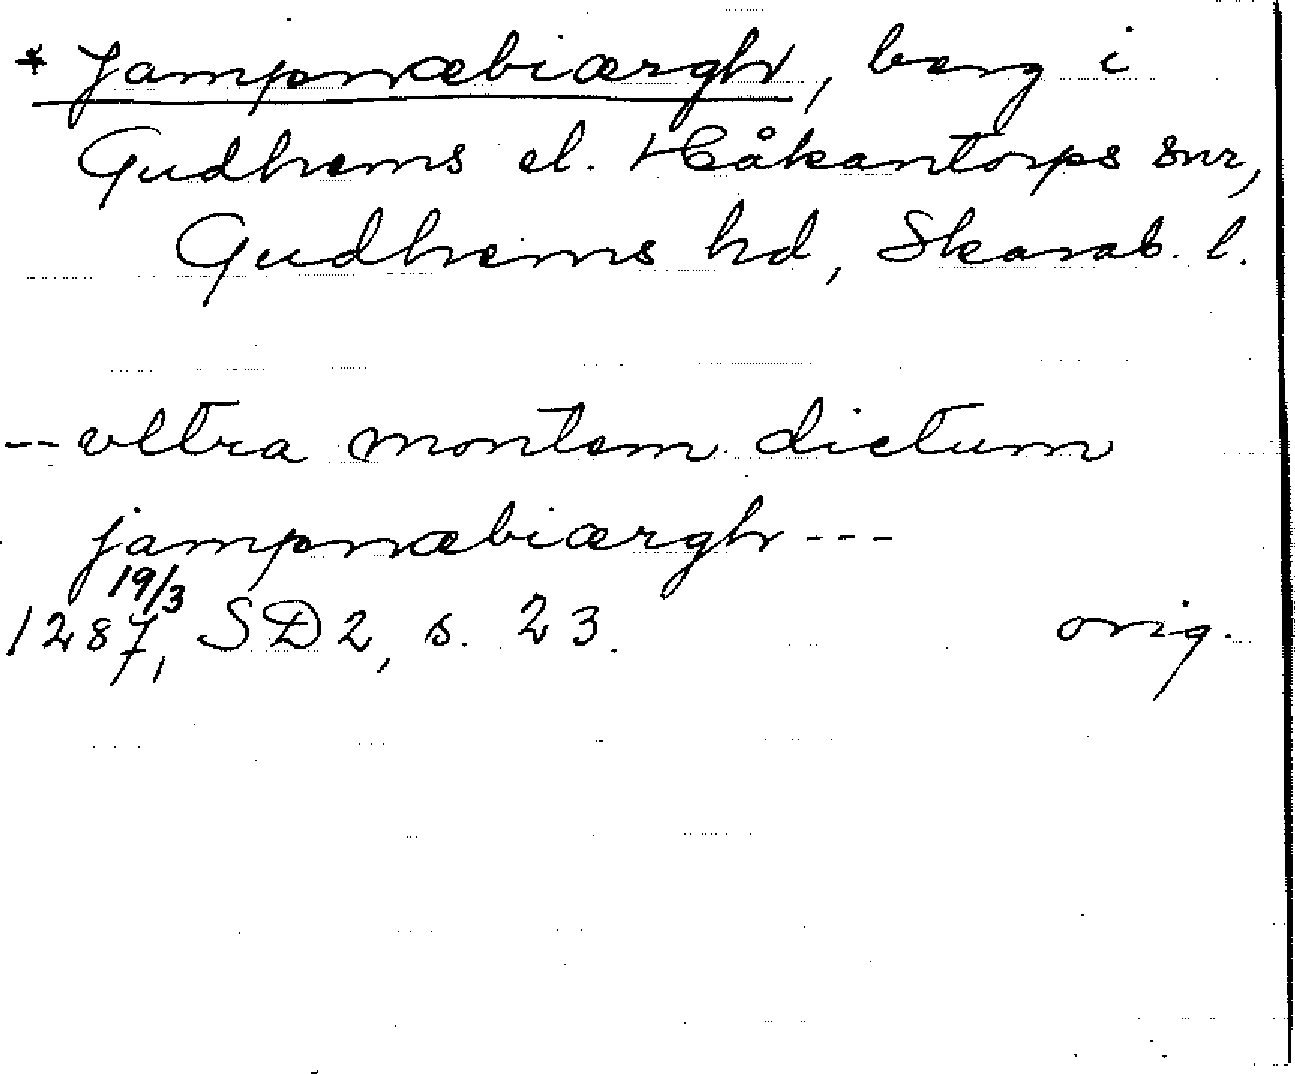 * Jampnæbiærgh, berg i
Gudhems el. Håkantorps snr,
Gudhems hd, Skarab. l.
-- vltra montem dictum
jampnæbiærgh ---
19/3
1287, SD 2, s. 23. orig.